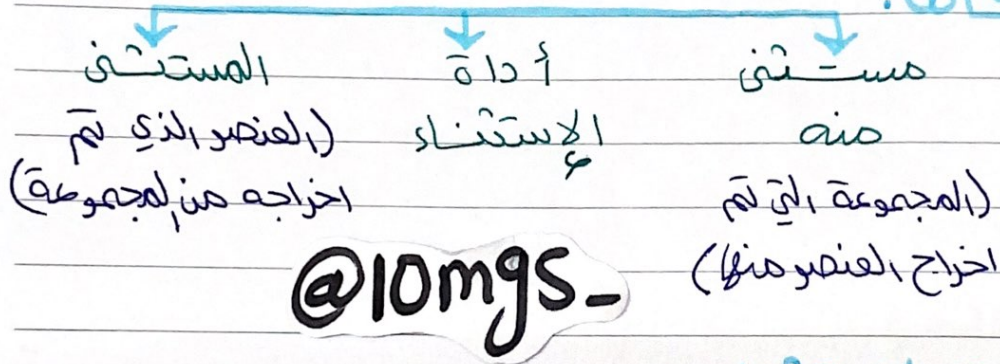 مستثنى
منه
(المجموعة التي تم
اخراج العنصر منها)
أداة
الإستثناء
المستثنى
(العنصر الذي تم
اخراجه من المجموعة)
@10mgs_